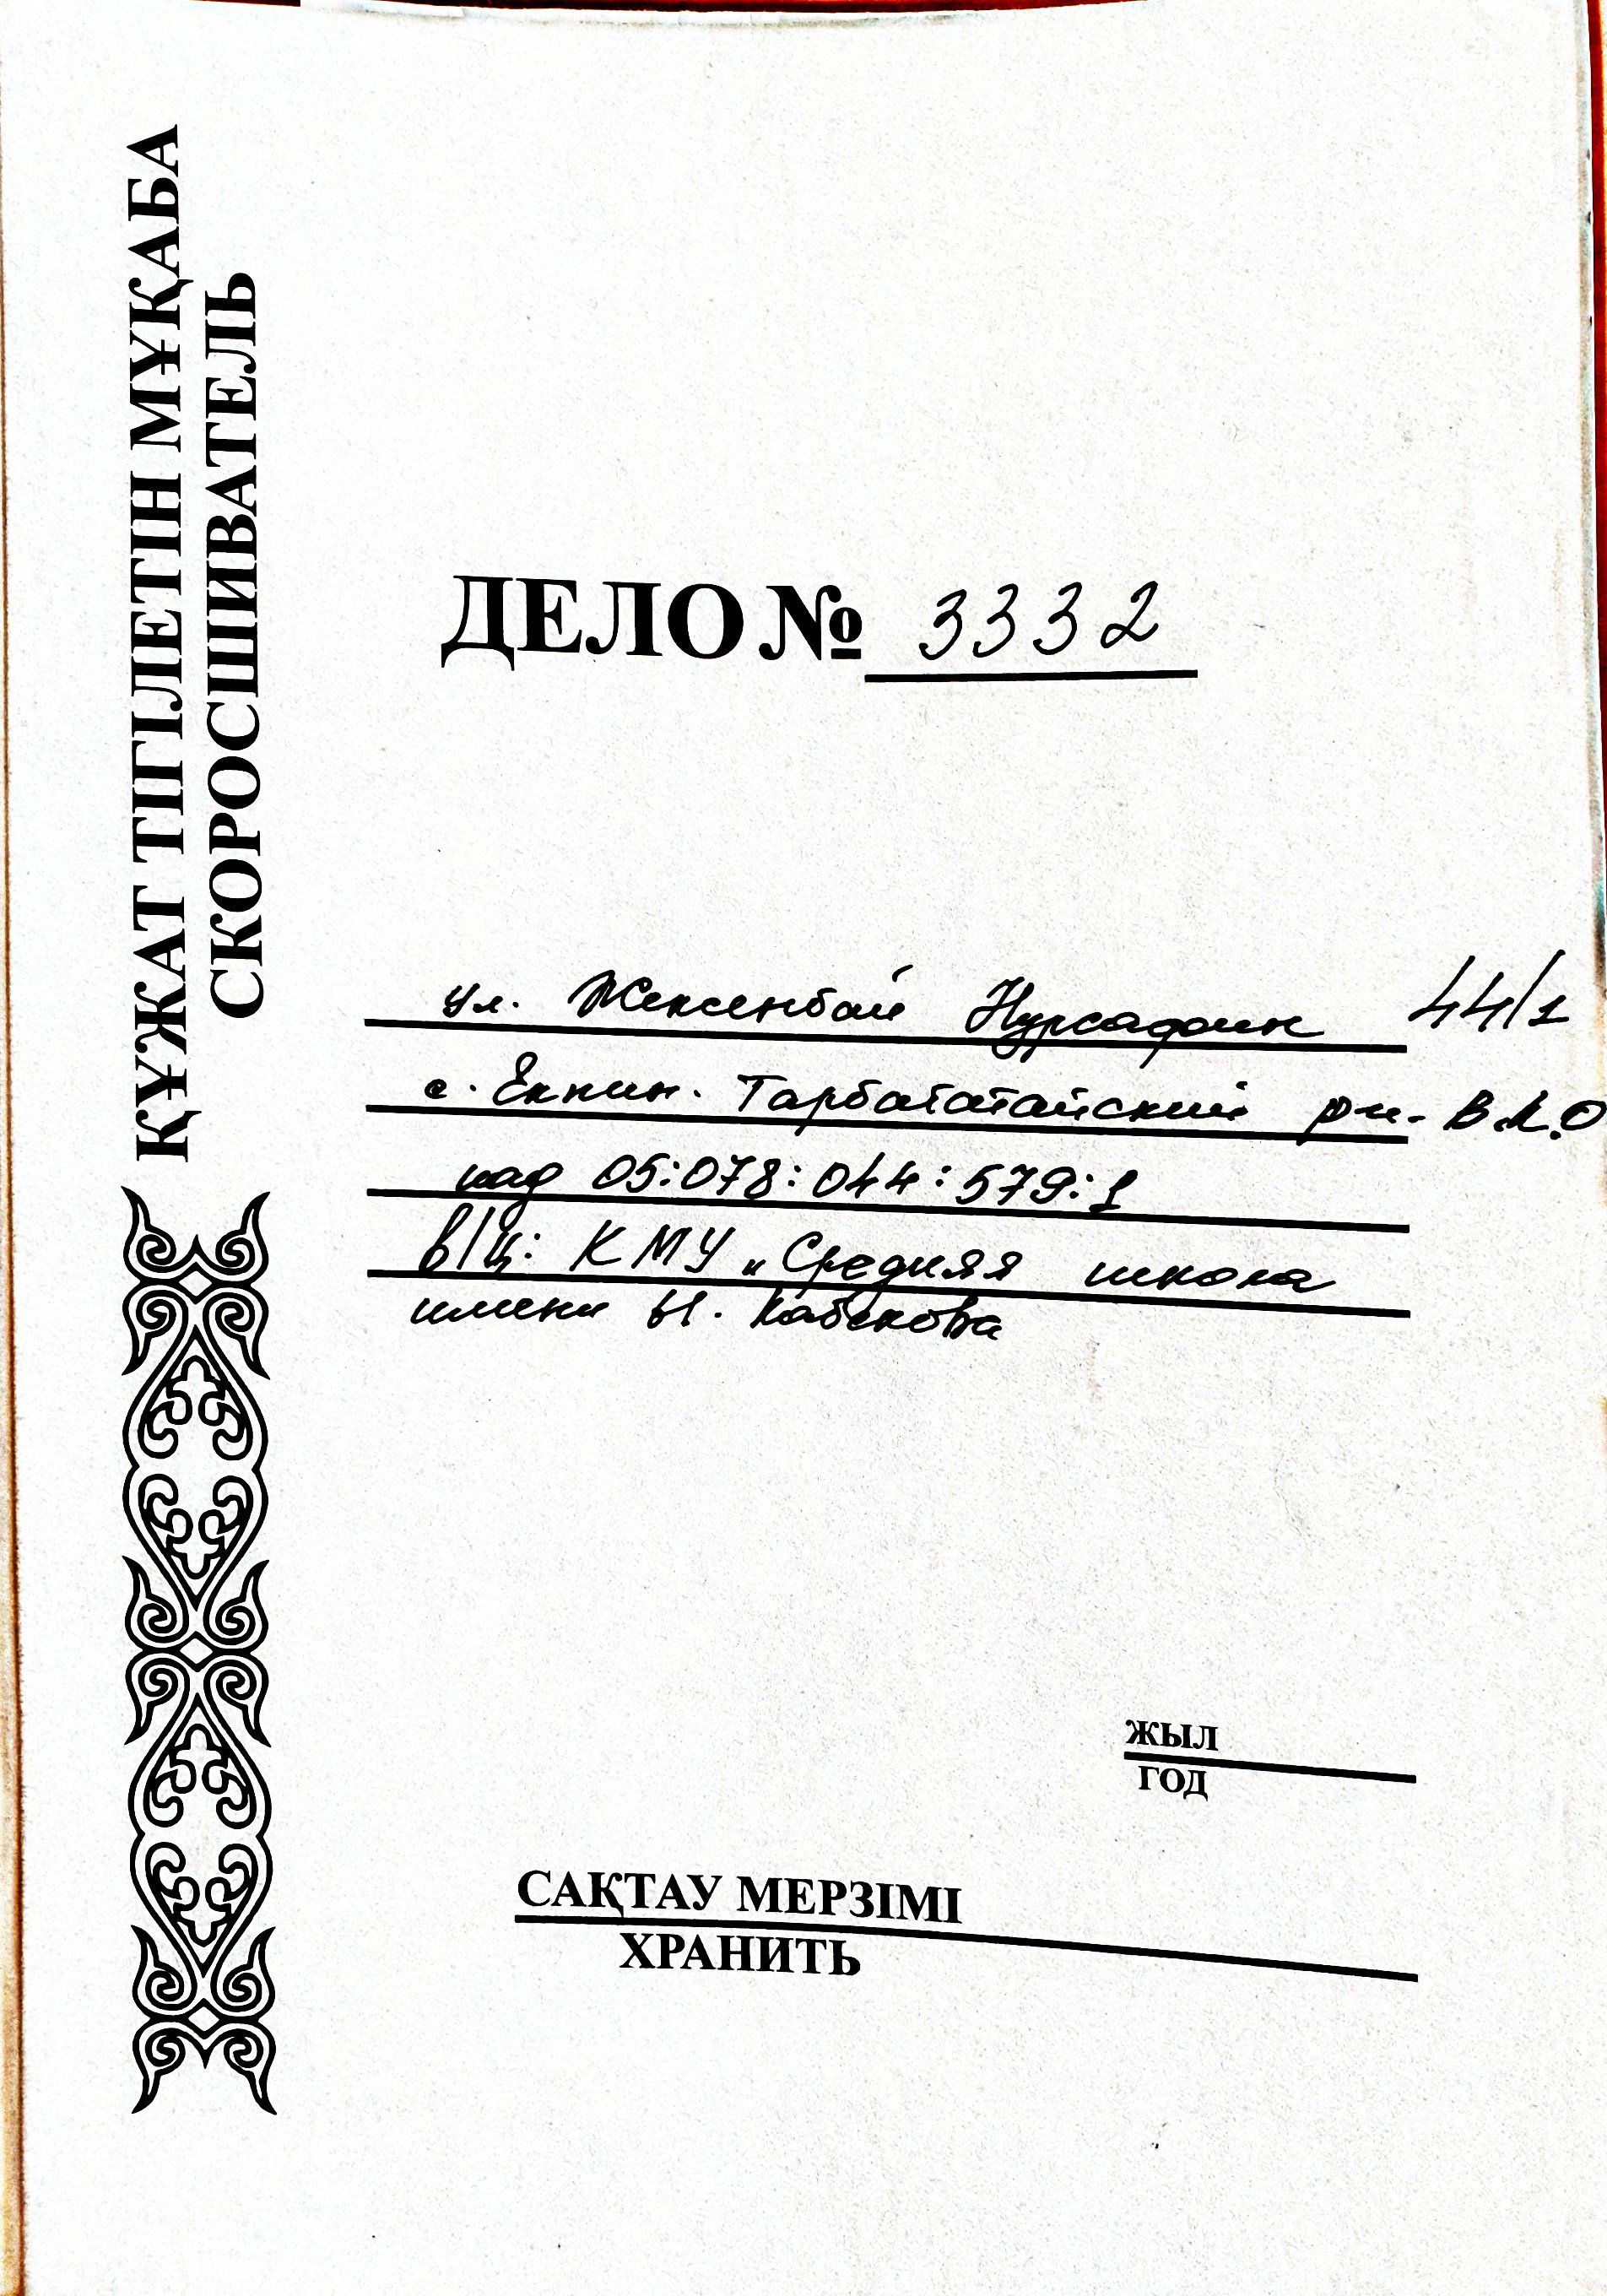 ҚҰЖАТ ТІГІЛЕТІН МҰҚАБА
СКОРОСШИВАТЕЛЬ
ДЕЛО № 3332
ул. Жексенбай Нурсафин 44/1
с. Екпин. Тарбагатайский рн. В.К.О
кад 05:078:044:579:1
в/ц: КМУ "Средняя школа
имени Ы. Кабекова
ЖЫЛ
ГОД
САҚТАУ МЕРЗІМІ
ХРАНИТЬ